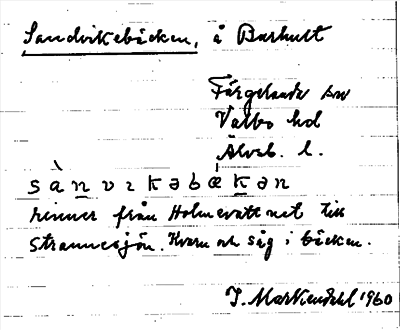 Sandvikebäcken, å Barhult
Färgelanda sn
Valbo hd
Älvsb. l.
sànvɪkəbækən
rinner från Holmevattnet till
Strannesjön. Kvarn och såg i bäcken.
1960